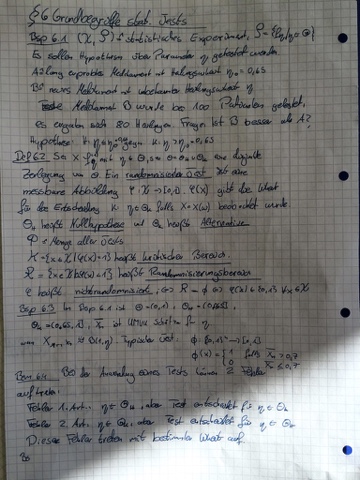 §6 Grundbegriffe stat. Tests
Bsp 6.1 (X, P) statistisches Experiment, P = {P_η | η ∈ Θ}
Es sollen Hypothesen über Parameter η getestet werden
A: Lang erprobtes Medikament mit Heilungswahrsch η₀ = 0,65
B: neues Medikament mit unbekannter Heilungswahrsch η
Medikament B wurde bei 100 Patienten getestet,
es ergaben sich 80 Heilungen. Frage: Ist B besser als A?
Hypothese: H: η ≤ η₀ gegen K: η > η₀ = 0,65
Def 6.2 Sei X ~ P_η mit η ∈ Θ, Θ = Θ_H ∪ Θ_K eine disjunkte
Zerlegung von Θ. Ein randomisierter Test ist eine
messbare Abbildung φ: X → [0,1]. φ(x) gibt die Wkeit
für die Entscheidung K: η ∈ Θ_K falls X = x beobachtet wurde
Θ_H heißt Nullhypothese und Θ_K heißt Alternative
Φ = Menge aller Tests
K = {x ∈ X | φ(x) = 1} heißt kritischer Bereich
R = heißt Randomisierungsbereich
φ heißt nichtrandomisiert, :⇔ R = ∅ ⇔ φ(x) ∈ {0,1} ∀x ∈ X
Bsp 6.3 In Bsp 6.1 ist Θ = (0,1), Θ_H = (0, 0,65],
Θ_K = (0,65, 1), ist UMVU Schätzer für η
Typischer Test: φ: → [0,1]
φ(x) = { 1 falls > 0,7
0 ≤ 0,7
Bem 6.4 Bei der Anwendung eines Tests können 2 Fehler
auftreten:
Fehler 1. Art: η ∈ Θ_H, aber Test entscheidet für η ∈ Θ_K
Fehler 2. Art: η ∈ Θ_K, aber Test entscheidet für η ∈ Θ_H
Diese Fehler treten mit bestimmter Wkeit auf